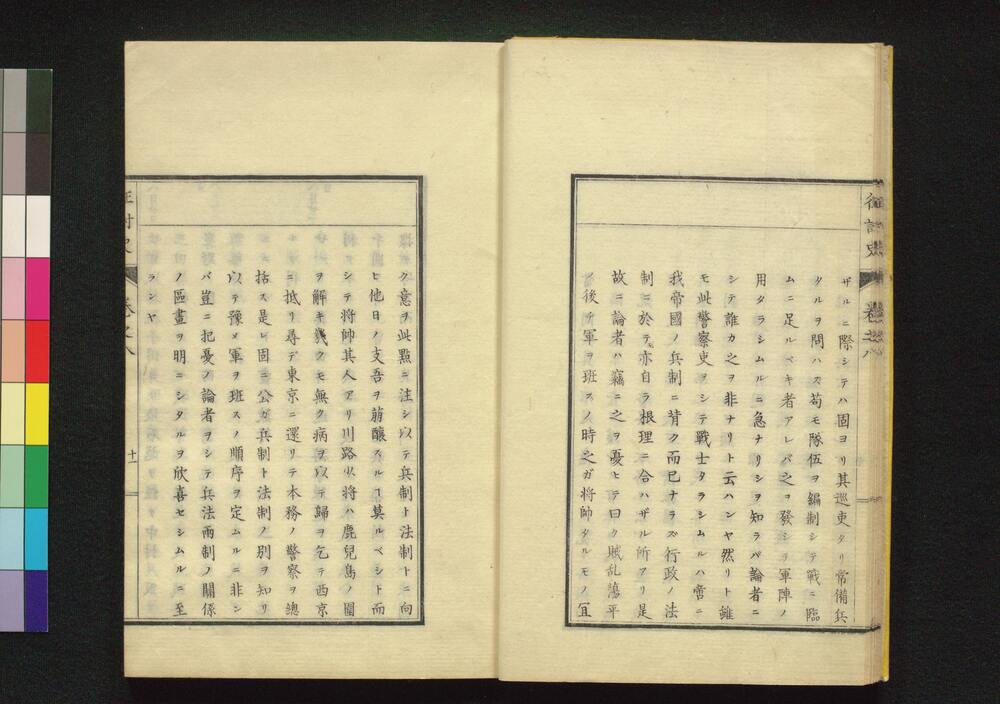 征討史
卷之八
ザルニ際シテハ固ヨリ其巡吏タリ常備兵
タルヲ問ハス苟モ隊伍ヲ編制シテ戰ニ臨
ムニ足ルベキ者アレバ之ヲ發シヲ軍陣ノ
用タラシムルニ急ナリシヲ知ラバ論者ニ
シテ誰カ之ヲ非ナリト云ハンヤ然リト雖
モ此警察吏ヲシテ戰士タラシムルハ啻ニ
我帝國ノ兵制ニ背ク而已ナラズ行政ノ法
制ニ於テ亦自ラ根理ニ合ハザル所アリ是
故ニ論者ハ竊ニ之ヲ憂ヒテ曰ク賊乱蕩平
ノ後チ軍ヲ班スノ時之ガ將帥タルモノ宜
ク意ヲ此點ニ注シ以テ兵制ト法制トニ向
ヒ他日ノ支吾ヲ萠醸スルヿ莫ルベシト而
シテ將帥其人アリ川路少將ハ鹿兒島ノ圍
ヲ解キ幾クモ無ク病ヲ以テ歸ヲ乞テ西京
ニ抵リ尋デ東京ニ還リテ本務ノ警察ヲ總
括ス是レ固ニ公ガ兵制ト法制ノ別ヲ知リ
以テ豫メ軍ヲ班スノ順序ヲ定ムルニ非ン
バ豈ニ犯憂ノ論者ヲシテ兵法兩制ノ關係
ノ區畫ヲ明ニシタルヲ欣喜セシムルニ至
ランヤ
征討史
卷之八
十一